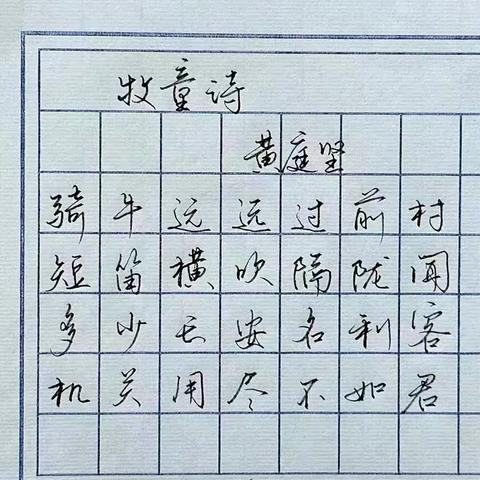 牧童诗
黄庭坚
骑牛远远过前村
短笛横吹隔陇闻
多少长安名利客
机关用尽不如君